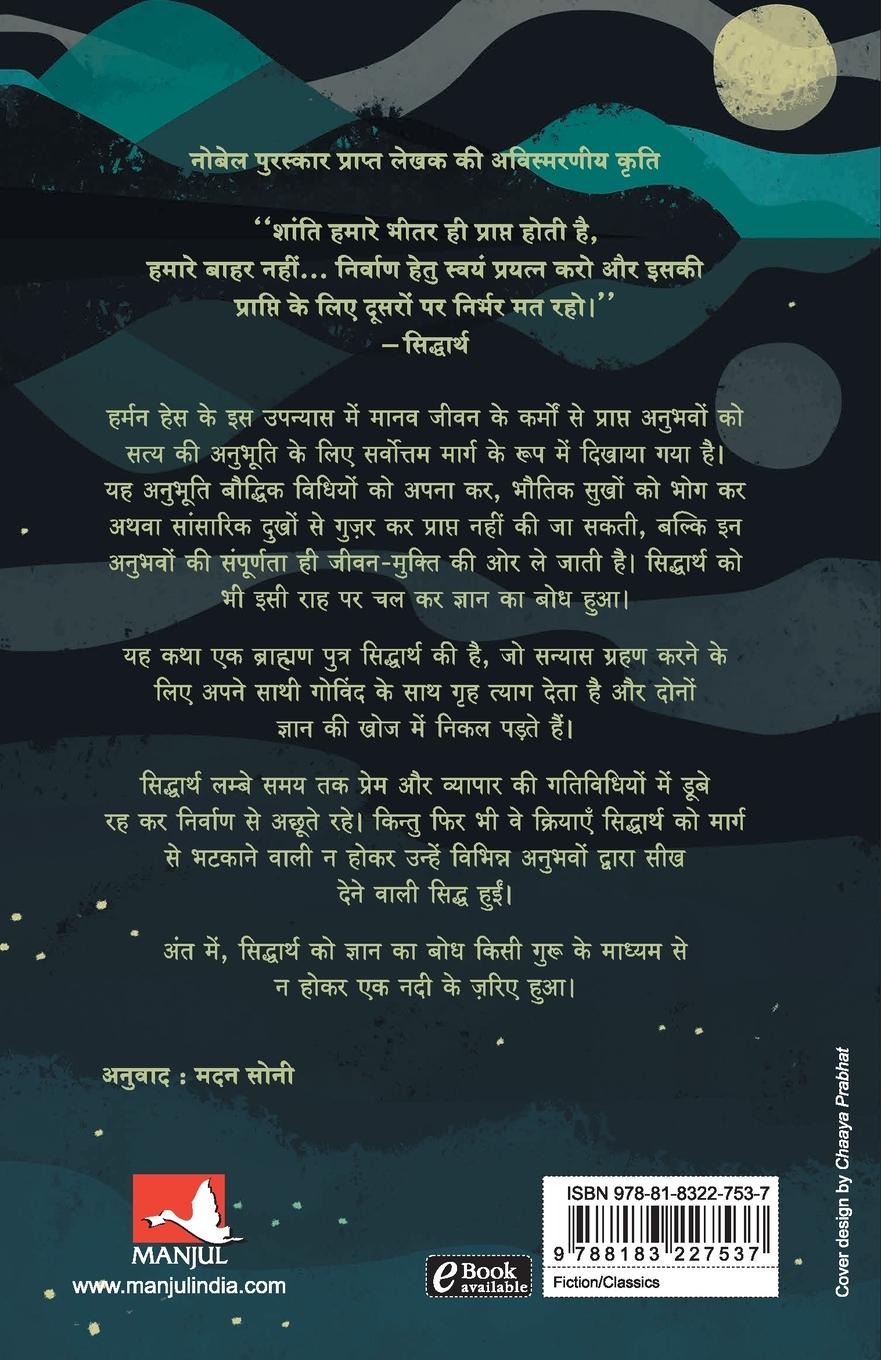 नोबेल पुरस्कार प्राप्त लेखक की अविस्मरणीय कृति
‘‘शांति हमारे भीतर ही प्राप्त होती है,
हमारे बाहर नहीं... निर्वाण हेतु स्वयं प्रयत्न करो और इसकी
प्राप्ति के लिए दूसरों पर निर्भर मत रहो।’’
–सिद्धार्थ
हर्मन हेस के इस उपन्यास में मानव जीवन के कर्मों से प्राप्त अनुभवों को
सत्य की अनुभूति के लिए सर्वोत्तम मार्ग के रूप में दिखाया गया है।
यह अनुभूति बौद्धिक विधियों को अपना कर, भौतिक सुखों को भोग कर
अथवा सांसारिक दुखों से गुज़र कर प्राप्त नहीं की जा सकती, बल्कि इन
अनुभवों की संपूर्णता ही जीवन-मुक्ति की ओर ले जाती है। सिद्धार्थ को
भी इसी राह पर चल कर ज्ञान का बोध हुआ।
यह कथा एक ब्राह्मण पुत्र सिद्धार्थ की है, जो सन्यास ग्रहण करने के
लिए अपने साथी गोविंद के साथ गृह त्याग देता है और दोनों
ज्ञान की खोज में निकल पड़ते हैं।
सिद्धार्थ लम्बे समय तक प्रेम और व्यापार की गतिविधियों में डूबे
रह कर निर्वाण से अछूते रहे। किन्तु फिर भी वे क्रियाएँ सिद्धार्थ को मार्ग
से भटकाने वाली न होकर उन्हें विभिन्न अनुभवों द्वारा सीख
देने वाली सिद्ध हुईं।
अंत में, सिद्धार्थ को ज्ञान का बोध किसी गुरू के माध्यम से
न होकर एक नदी के ज़रिए हुआ।
अनुवाद : मदन सोनी
MANJUL
www.manjulindia.com
eBook
available
ISBN 978-81-8322-753-7
9 788183 227537
Fiction/Classics
Cover design by Chaaya Prabhat